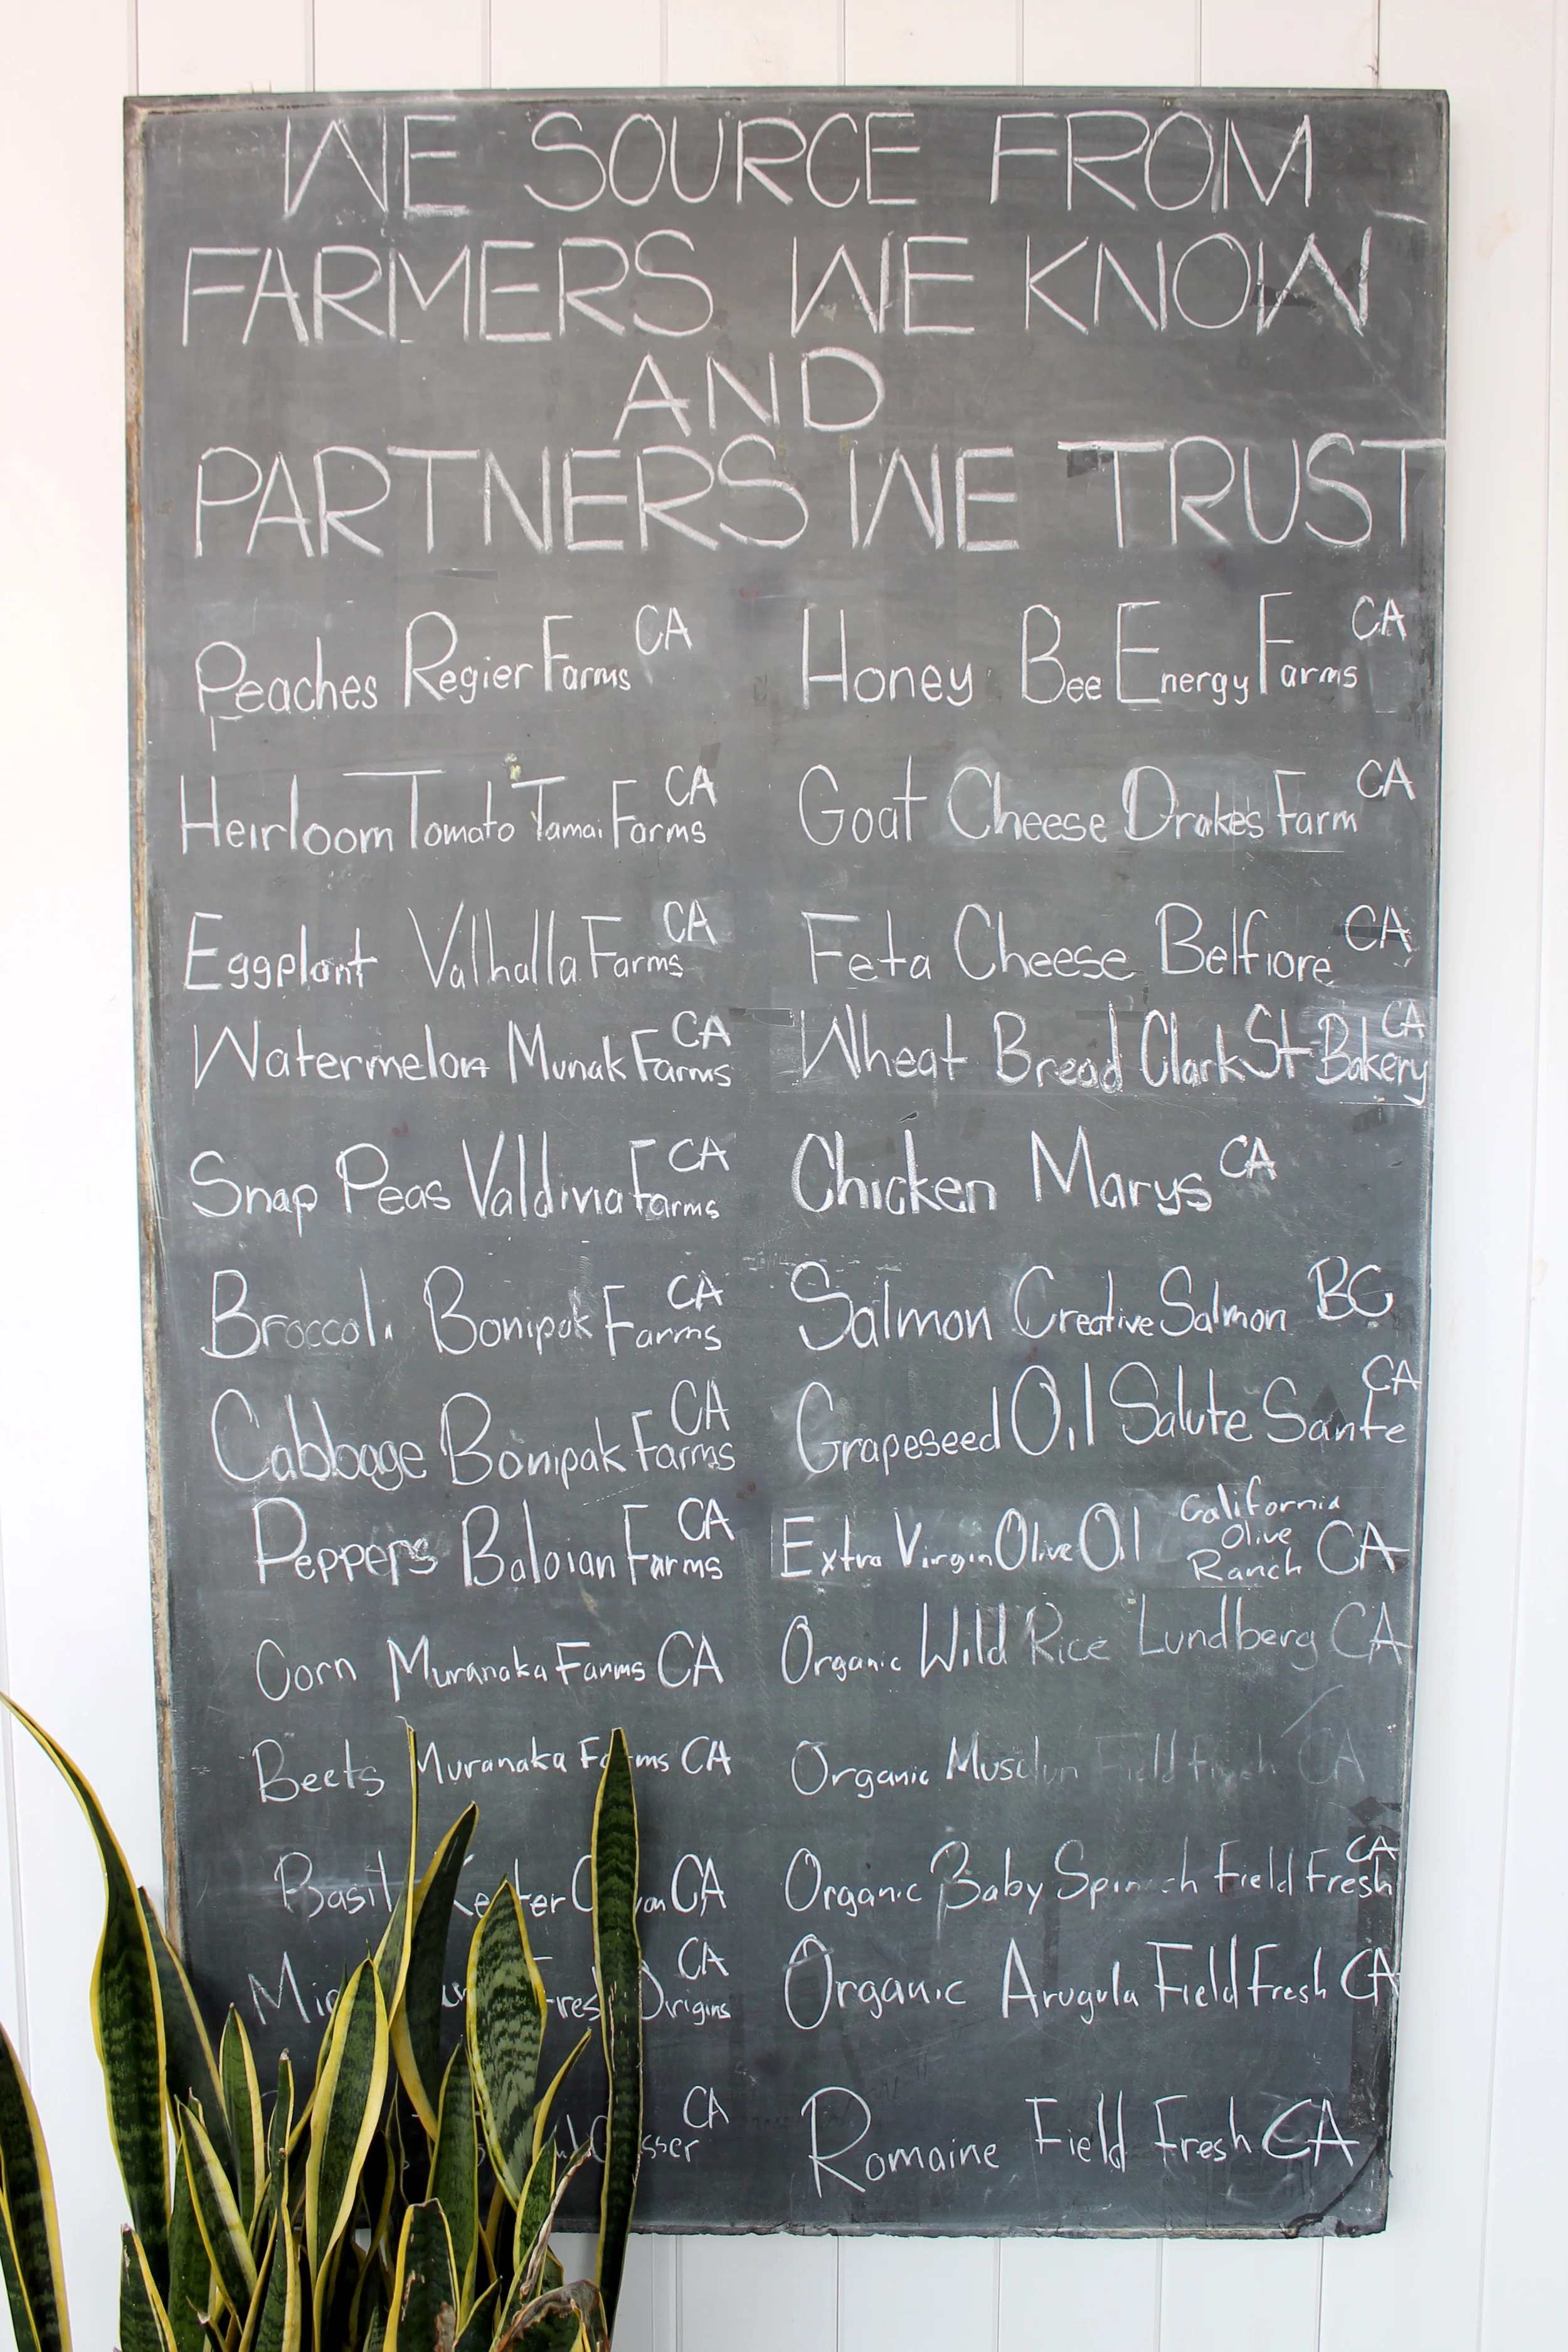 WE SOURCE FROM
FARMERS WE KNOW
AND
PARTNERS WE TRUST
Peaches Regier Farms CA
Heirloom Tomato Tamai Farms CA
Eggplant Valhalla Farms CA
Watermelon Munak Farms CA
Snap Peas Valdivia Farms CA
Broccoli Bonipak Farms CA
Cabbage Bonipak Farms CA
Peppers Baloian Farms CA
Corn Muranaka Farms CA
Beets Muranaka Farms CA
Basil CA
Origins CA
CA
Honey Bee Energy Farms CA
Goat Cheese Drakes Farm CA
Feta Cheese Belfiore CA
Wheat Bread Clark St Bakery CA
Chicken Marys CA
Salmon Creative Salmon BC
Grapeseed Oil Salute Sante CA
Extra Virgin Olive Oil California Olive Ranch CA
Organic Wild Rice Lundberg CA
Organic Musclun Field Fresh CA
Organic Baby Spinach Field Fresh CA
Organic Arugula Field Fresh CA
Romaine Field Fresh CA